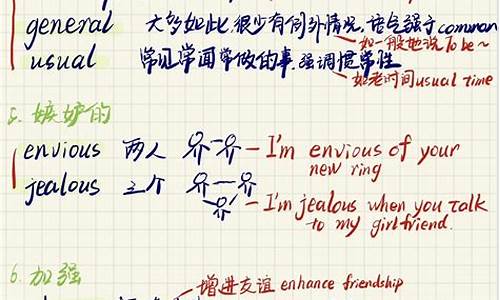 general 大多如此,很少有例外情况,语气强于common
如一般地说To be~
usual 常见常闻常做的事,强调惯常性
如老时间usual time
5. 嫉妒的
envious 两人 — I'm envious of your
new ring
jealous 三个
— I'm jealous when you talk
to my girlfriend.
6. 加强
增进友谊 enhance friendship